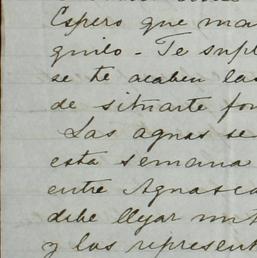 Espero que ma
quilo - Te supl
se te acaben las
de situarte fon
Las aguas se
esta semana
entre Aguasca
debe llegar
y los represent